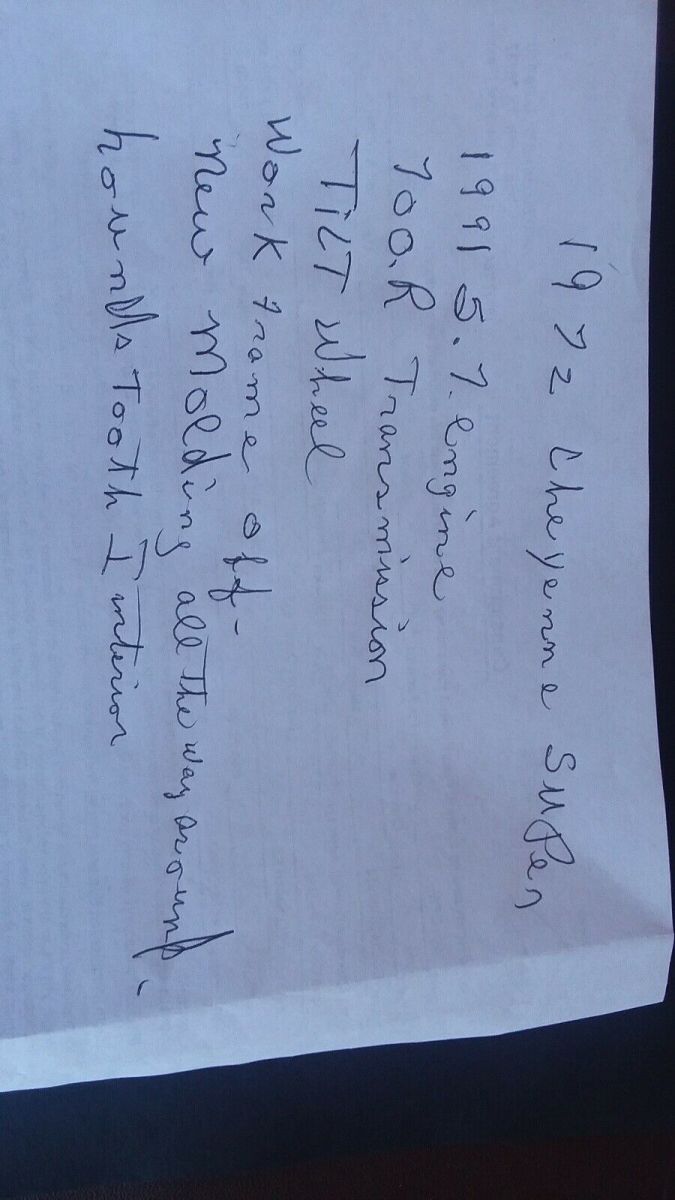 1972 Cheyenne Super
1991 5.7. engine
700.R Transmission
TiLT Wheel
Work frame off-
New Molding all The way around.
houndsTooth Interior